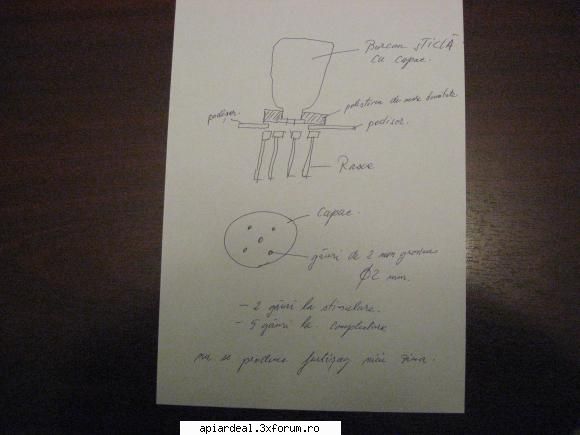 Borcan STICLĂ
cu capac.
polistiren de mare densitate
podișor.
podișor.
Rame
Capac.
găuri de 2 mm grosime
Ø2 mm.
- 2 găuri la stimulare.
- 5 găuri la completare
nu se produce furtișag nici ziua.
apiardeal.3xforum.ro